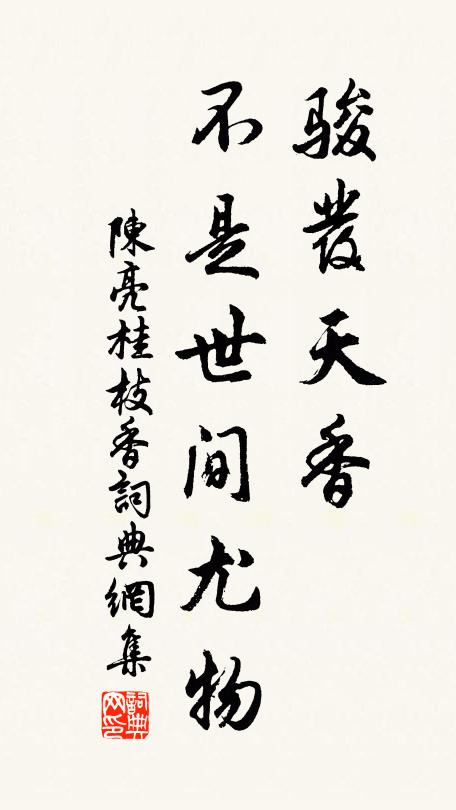 骏發天香
不是世间尤物
陳亮桂枝香詞典網集
詞典网印